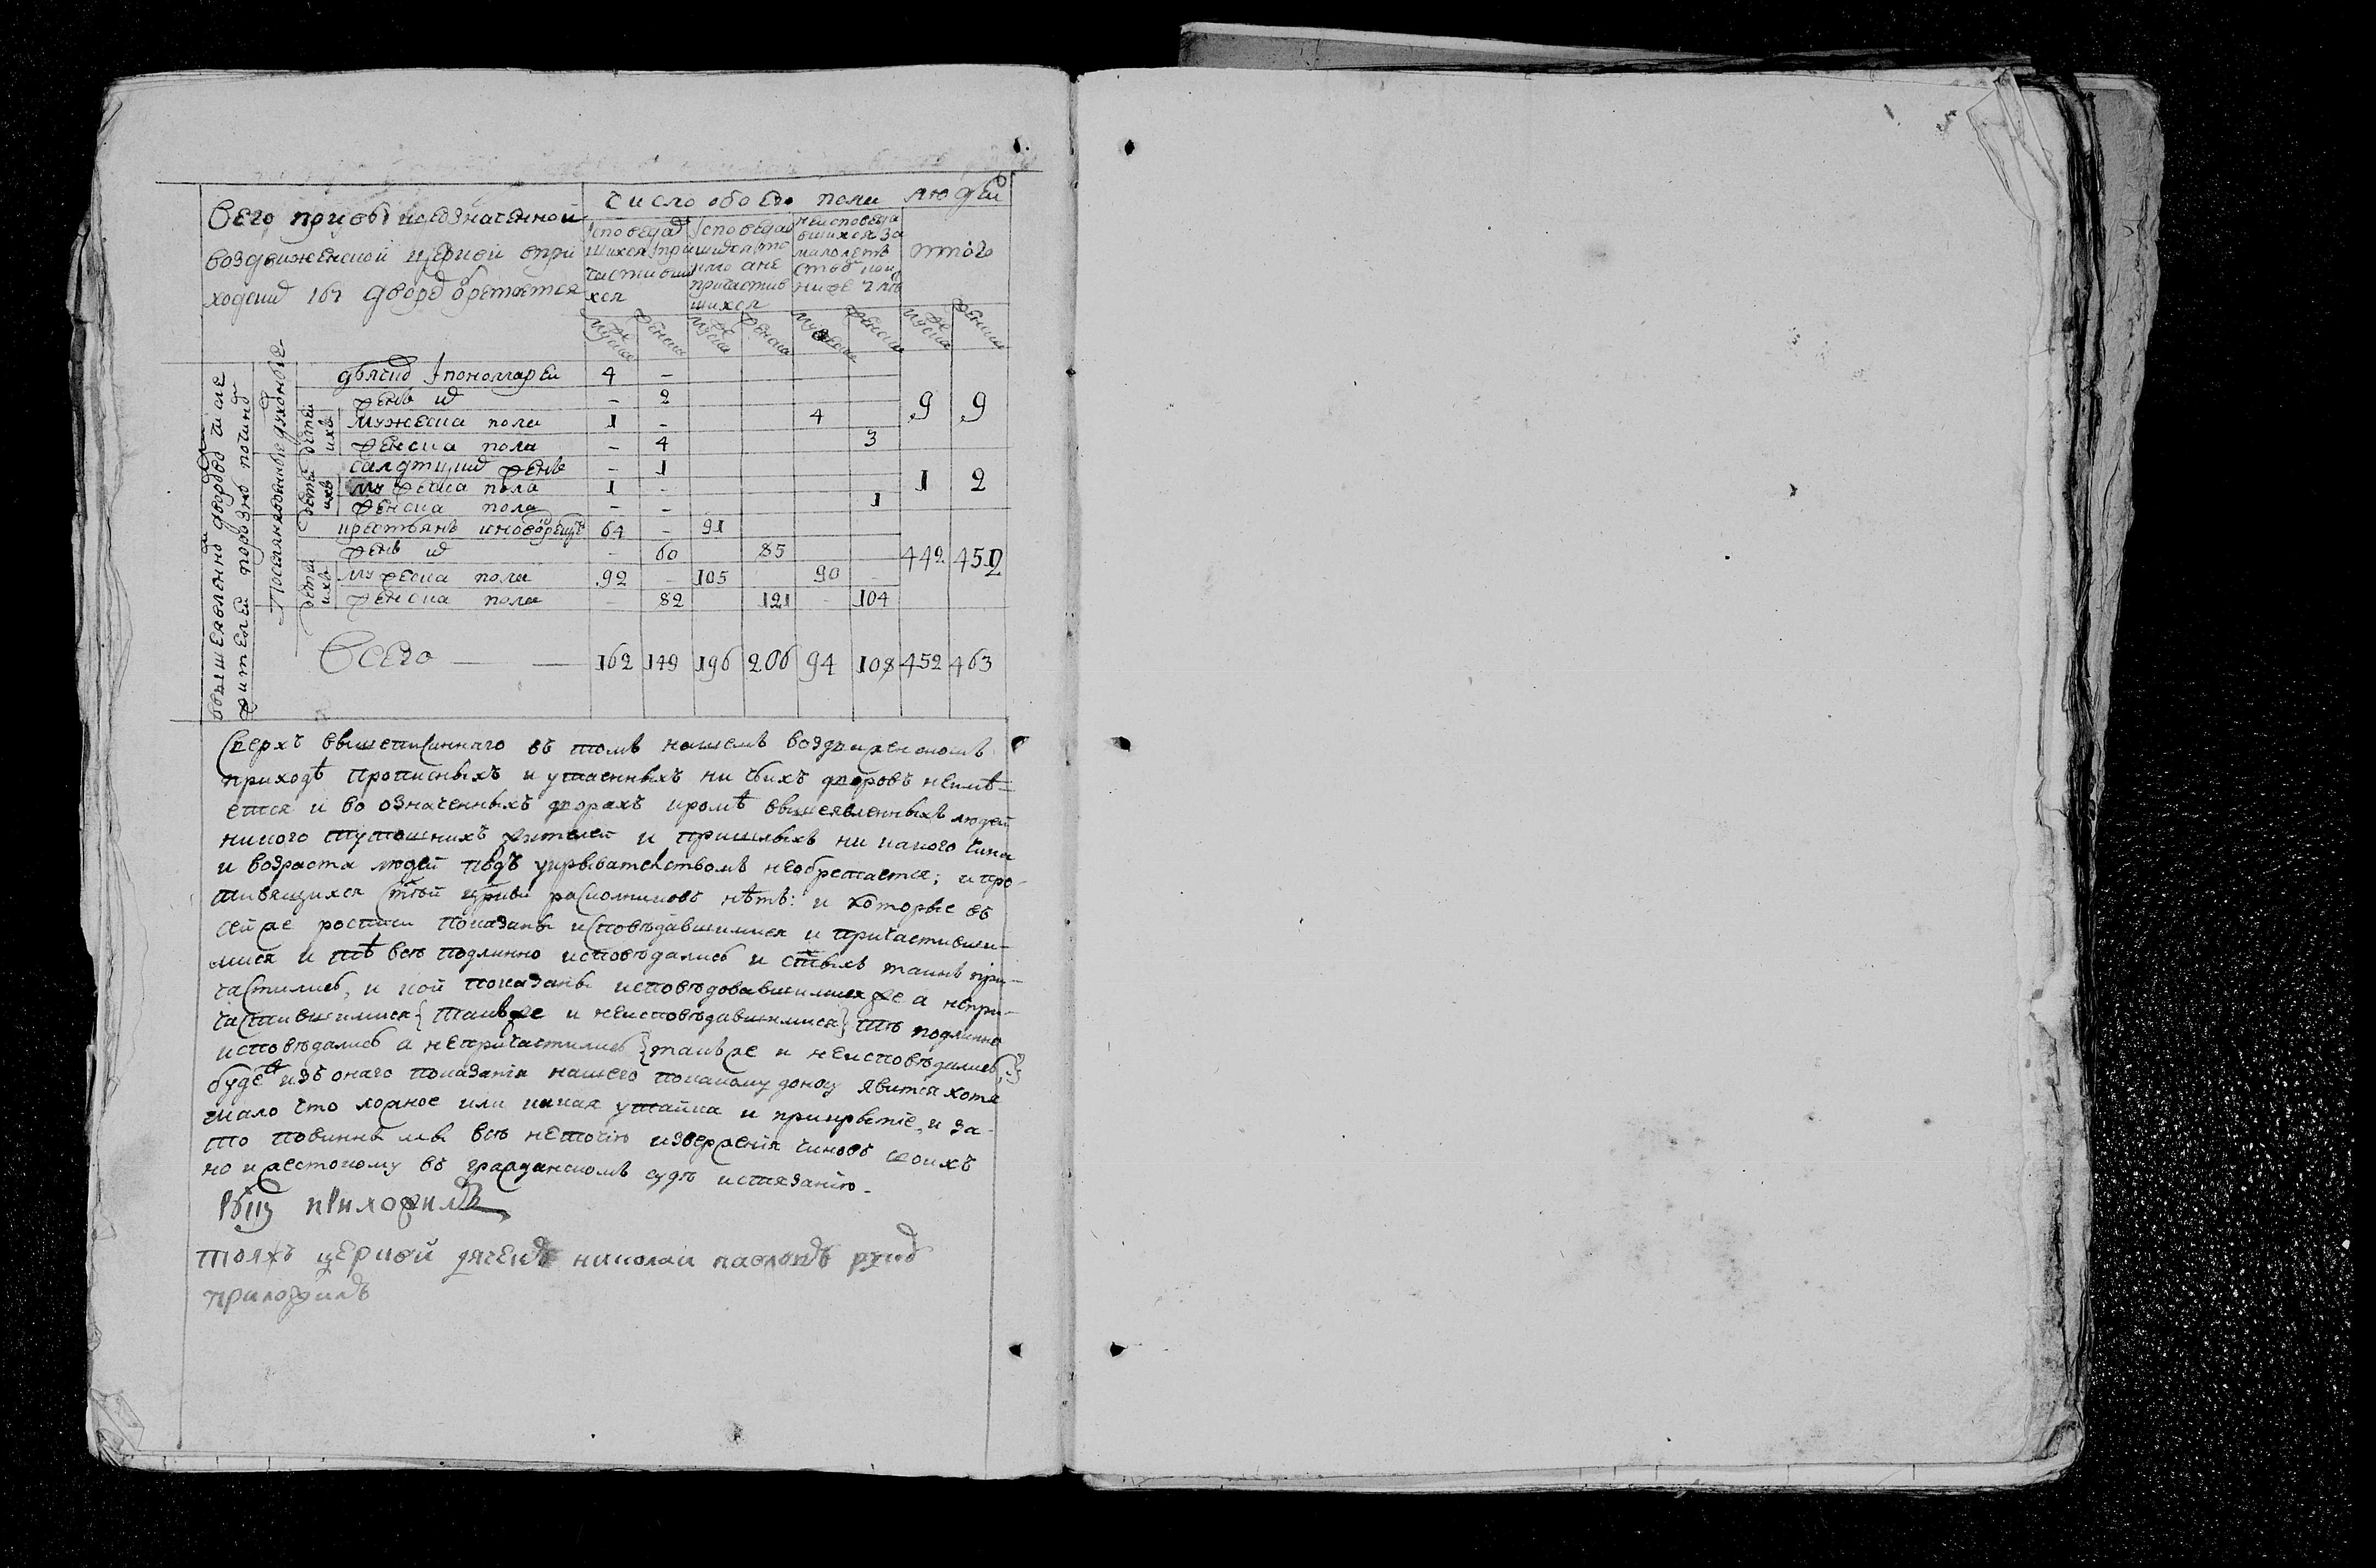 число обоего пола людей
Всего приобъявозначенной
воздвиженской церкви впри
ходскид 161 дворд обретается
Iсповедад
шихся Iпри
частивши
хся
Iсповедав
шихся тo
кмо ане
причастив
шихся
неисповеда
вшихся за
малолетъ
ствоб кои
ниже 7 летъ
итого
мужеска женска мужеска женска мужеска женска мужеска женска
вышеявленнои дворовои числе
жителей порознь почином
Посадскиа военные духовные
дьячкоб Iпономарей 4 —
женъ ид — 2
детей ихъ мужеска пола 1 — 4
женска пола — 4 3
9 9
салдтцкид женъ — 1
детей ихъ мужеска пола 1 —
женска пола — — 1
1 2
крестьянъ иноворцоб 64 — 91
женъ ид — 60 85
детей ихъ мужеска пола 92 — 105 90 —
женска пола — 82 121 — 104
442 452
Всего — — 162 149 196 206 94 108 452 463
Сверхъ вышеписаннаго въ томъ нашемъ воздвиженскомъ
приходѣ прописныхъ и утаенныхъ ни чьихъ дворовъ неимѣ-
ется и во означенныхъ дворахъ кромѣ вышеявленныхъ людей
никого тутошнихъ жителей и пришлыхъ ни какого чина
и возраста людей подъ укрывательствомъ необретается; и про-
тивящихся стой цркви раскольниковъ нѣтъ: и которые въ
сей же росписи показаны исповѣдавшимися и причастивши-
мися и тѣ всѣ подлинно исповѣдались и стыхъ таинъ при-
частились, и кои показаны исповѣдовавшимися же а непри-
частившимися {такъже и неисповѣдавшимися} тѣ подлинно
исповѣдались а непричастились {такъже и неисповѣдались,}
буде въ изъ онаго показанія нашего покакому доносу явится хотя
мало что ложное или какая утайка и прикрытіе, и за
то повинны мы всѣ неточію изверженія чиновъ своихъ
но и жестокому въ гражданскомъ судѣ истязанію.
рбцу приложилъ
тояжъ церкви дячекъ николаи павловъ рукоб
приложилъ